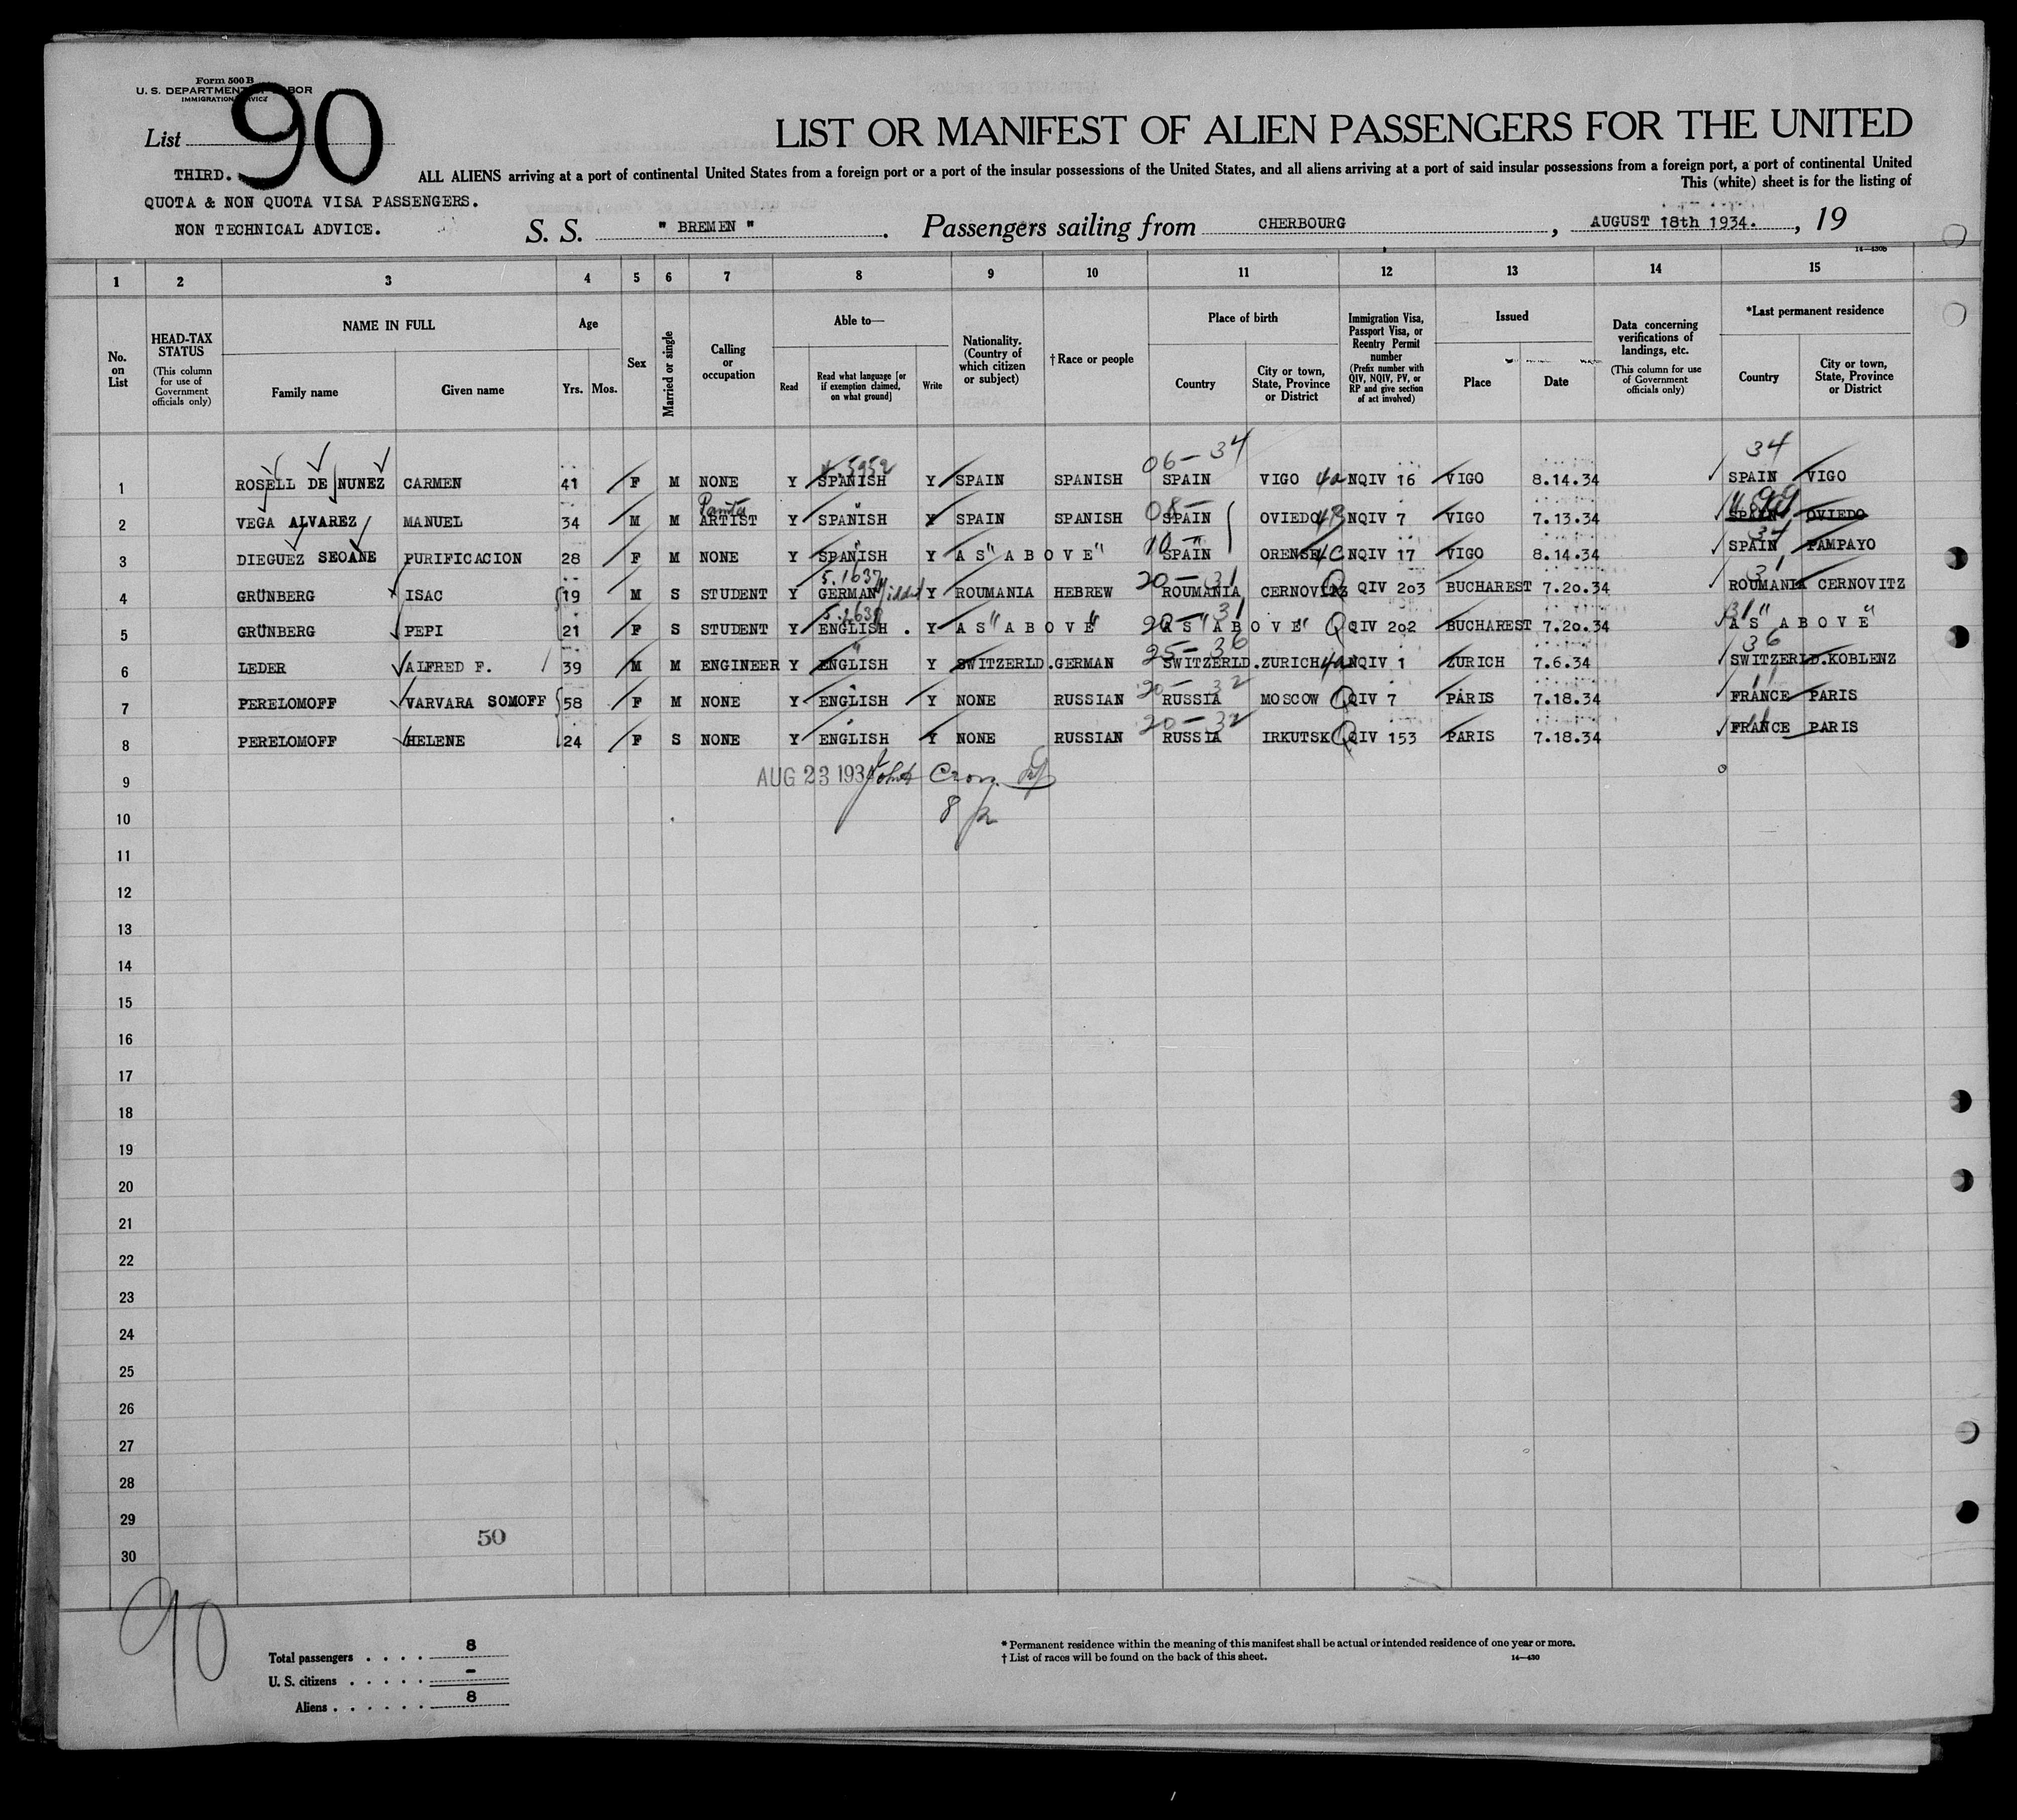 Form 500 B
U. S. DEPARTMENT OF LABOR
IMMIGRATION SERVICE
List 90
THIRD.
QUOTA & NON QUOTA VISA PASSENGERS.
NON TECHNICAL ADVICE.
LIST OR MANIFEST OF ALIEN PASSENGERS FOR THE UNITED
ALL ALIENS arriving at a port of continental United States from a foreign port or a port of the insular possessions of the United States, and all aliens arriving at a port of said insular possessions from a foreign port, a port of continental United
This (white) sheet is for the listing of
S. S. " BREMEN ". Passengers sailing from CHERBOURG, AUGUST 18th 1934., 19
14—430b
1 2 3 4 5 6 7 8 9 10 11 12 13 14 15
No. on List
HEAD-TAX STATUS (This column for use of Government officials only)
NAME IN FULL
Family name Given name
Age
Yrs. Mos.
Sex
Married or single
Calling or occupation
Able to—
Read Read what language [or if exemption claimed, on what ground] Write
Nationality. (Country of which citizen or subject)
†Race or people
Place of birth
Country City or town, State, Province or District
Immigration Visa, Passport Visa, or Reentry Permit number (Prefix number with QIV, NQIV, PV, or RP and give section of act involved)
Issued
Place Date
Data concerning verifications of landings, etc. (This column for use of Government officials only)
*Last permanent residence
Country City or town, State, Province or District
4.5952 06—34 34
1 ROSELL DE NUNEZ CARMEN 41 F M NONE Y SPANISH Y SPAIN SPANISH SPAIN VIGO 4a NQIV 16 VIGO 8.14.34 SPAIN VIGO
08— 99
2 VEGA ALVAREZ MANUEL 34 M M ARTIST Y SPANISH Y SPAIN SPANISH SPAIN OVIEDO NQIV 7 VIGO 7.13.34 SPAIN OVIEDO
10—" 34
3 DIEGUEZ SEOANE PURIFICACION 28 F M NONE Y SPANISH Y AS" ABOVE" SPAIN ORENSE 4C NQIV 17 VIGO 8.14.34 SPAIN PAMPAYO
5.1637 20—31 31
4 GRÜNBERG ISAC 19 M S STUDENT Y GERMAN Y ROUMANIA HEBREW ROUMANIA CERNOVITZ Q QIV 203 BUCHAREST 7.20.34 ROUMANIA CERNOVITZ
5.2638 20—31 31
5 GRÜNBERG PEPI 21 F S STUDENT Y ENGLISH. Y AS" ABOVE" AS" ABOVE" Q QIV 202 BUCHAREST 7.20.34 AS" ABOVE"
25—36 36
6 LEDER ALFRED F. 39 M M ENGINEER Y ENGLISH Y SWITZERLD. GERMAN SWITZERLD. ZURICH 4a NQIV 1 ZURICH 7.6.34 SWITZERLD. KOBLENZ
20—32 11
7 PERELOMOFF VARVARA SOMOFF 58 F M NONE Y ENGLISH Y NONE RUSSIAN RUSSIA MOSCOW Q QIV 7 PARIS 7.18.34 FRANCE PARIS
20—32 11
8 PERELOMOFF HELENE 24 F S NONE Y ENGLISH Y NONE RUSSIAN RUSSIA IRKUTSK Q QIV 153 PARIS 7.18.34 FRANCE PARIS
9 AUG 23 1934
10
11
12
13
14
15
16
17
18
19
20
21
22
23
24
25
26
27
28
29
50
30
90
Total passengers . . . . 8
U. S. citizens . . . . . –
Aliens . . . . . . 8
* Permanent residence within the meaning of this manifest shall be actual or intended residence of one year or more.
† List of races will be found on the back of this sheet.
14—430